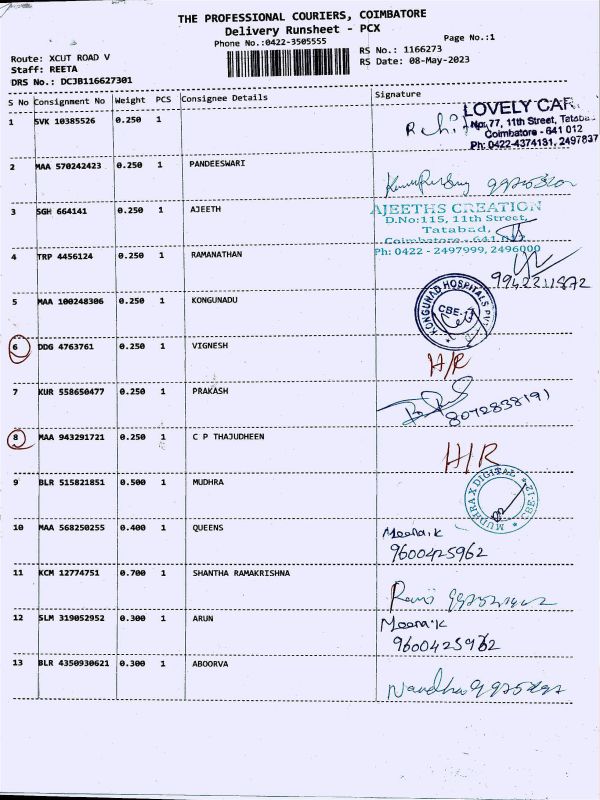 THE PROFESSIONAL COURIERS, COIMBATORE
Delivery Runsheet - PCX
Phone No.:0422-3505555
Page No.:1
Route: XCUT ROAD V
Staff: REETA
DRS No.: DCJB116627301
RS No.: 1166273
RS Date: 08-May-2023
S No Consignment No Weight PCS Consignee Details Signature
1 SVK 10385526 0.250 1
LOVELY CAR
No. 77, 11th Street, Tatabad
Coimbatore - 641 012
Ph: 0422-4374131, 2497637
2 MAA 570242423 0.250 1 PANDEESWARI
3 SGH 664141 0.250 1 AJEETH
AJEETHS CREATION
D.No:115, 11th Street,
Tatabad,
Coimbatore - 641 012
Ph: 0422 - 2497999, 2496000
4 TRP 4456124 0.250 1 RAMANATHAN
9942211872
5 MAA 100248306 0.250 1 KONGUNADU
KONGUNAD HOSPITALS PVT
CBE-12
6 DDG 4763761 0.250 1 VIGNESH H/R
7 KUR 558650477 0.250 1 PRAKASH
8072838191
8 MAA 943291721 0.250 1 C P THAJUDHEEN H/R
9 BLR 515821851 0.500 1 MUDHRA
MUDHRAX DIGITAL CBE-12
10 MAA 568250255 0.400 1 QUEENS Meena.k
9600425962
11 KCM 12774751 0.700 1 SHANTHA RAMAKRISHNA
12 SLM 319052952 0.300 1 ARUN Meena.k
9600425962
13 BLR 4350930621 0.300 1 ABOORVA
Nandha